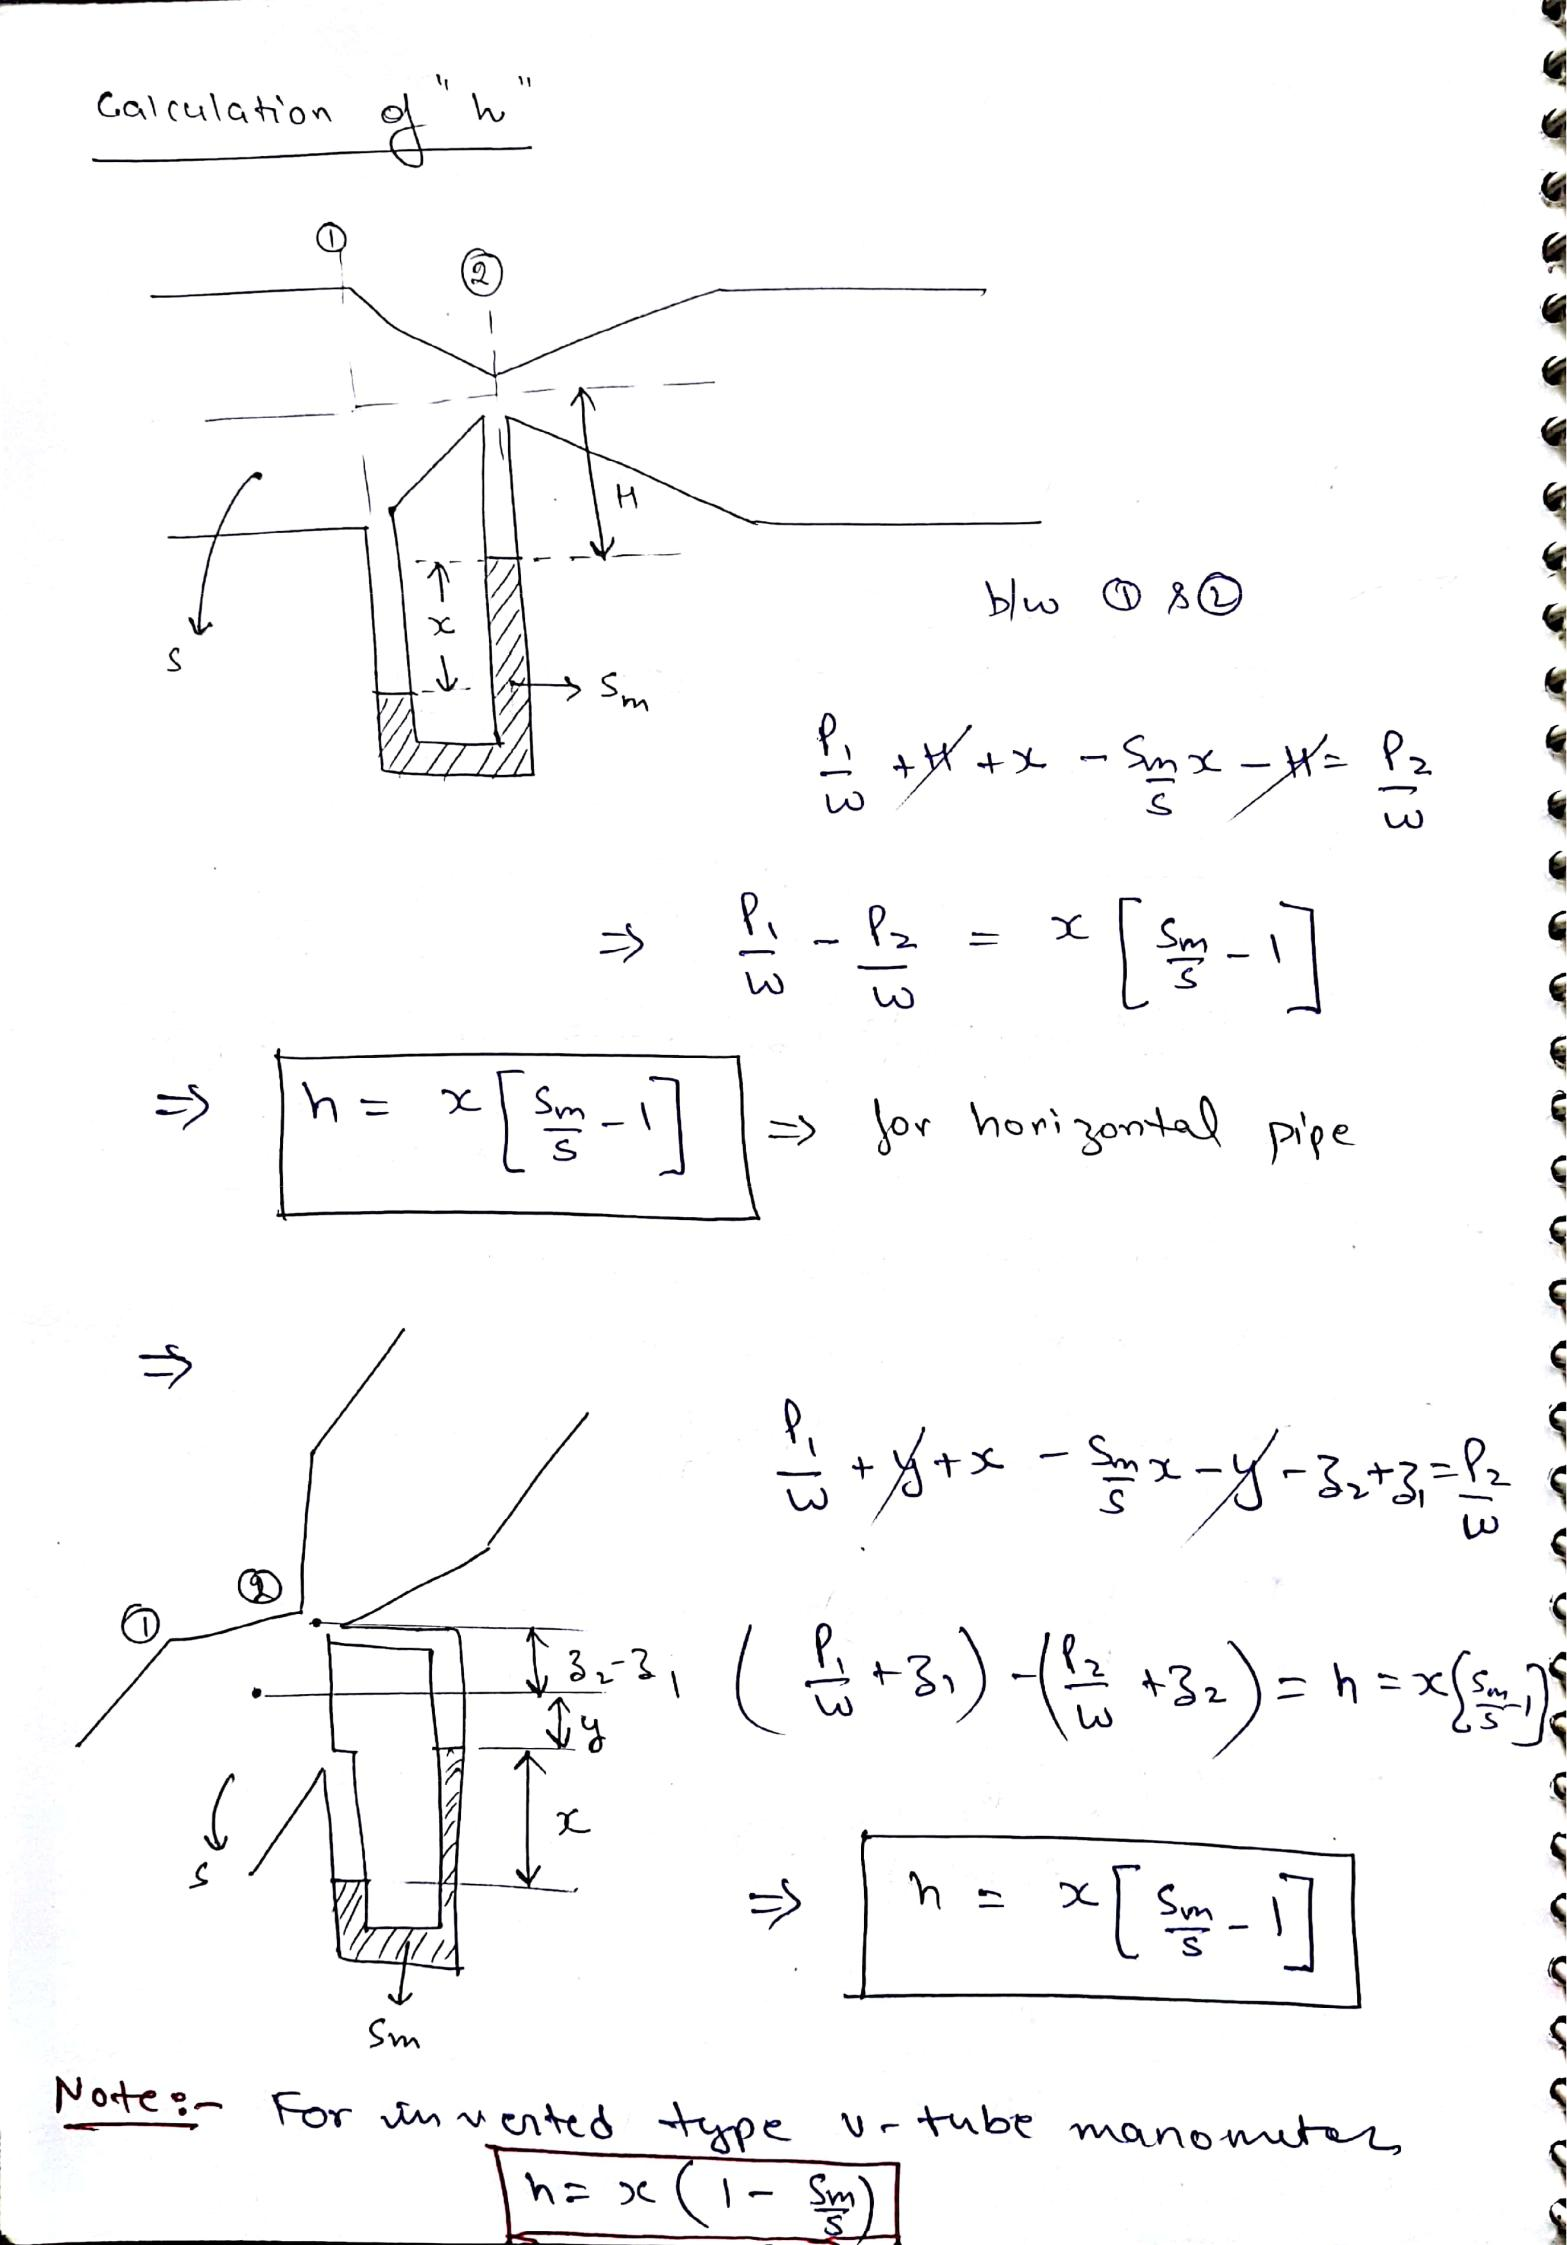 Calculation of "h"
①
②
H
x
S
Sm
b/w ① & ②
P₁/w + H + x - Sm/S x - H = P₂/w
⇒ P₁/w - P₂/w = x [Sm/S - 1]
⇒ h = x [Sm/S - 1] ⇒ for horizontal pipe
⇒
P₁/w + y + x - Sm/S x - y - z₂ + z₁ = P₂/w
②
①
z₂-z₁
(P₁/w + z₁) - (P₂/w + z₂) = h = x{Sm/S - 1}
y
x
S
⇒ h = x [Sm/S - 1]
Sm
Note:- For inverted type U-tube manometer,
h = x (1 - Sm/S)